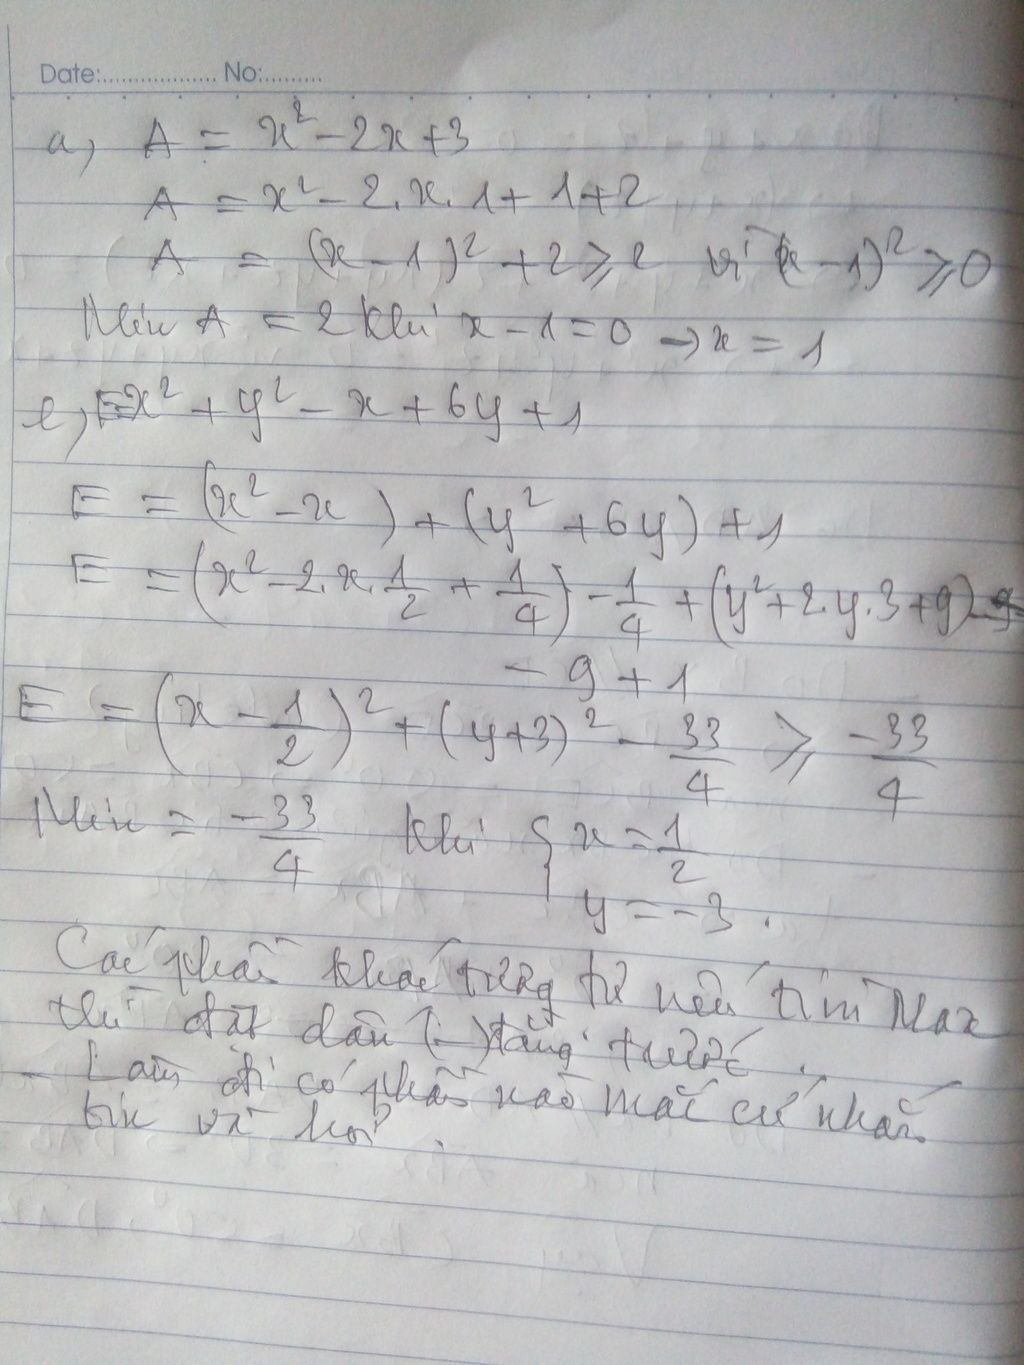 Date:................... No:.........
a, A = x² - 2x + 3
A = x² - 2.x.1 + 1 + 2
A = (x - 1)² + 2 ⩾ 2 vì (x - 1)² ⩾ 0
Min A = 2 khi x - 1 = 0 → x = 1
e, E = x² + y² - x + 6y + 1
E = (x² - x) + (y² + 6y) + 1
E = (x² - 2.x.1/2 + 1/4) - 1/4 + (y² + 2.y.3 + 9)
- 9 + 1
E = (x - 1/2)² + (y + 3)² - 33/4 ⩾ -33/4
Min = -33/4 khi { x = 1/2
y = -3.
Các phần khác tương tự nếu tìm Max
thì đặt dấu (-) đằng trước.
- Làm đi có phần nào mắc cứ nhắn
tin và hỏi.